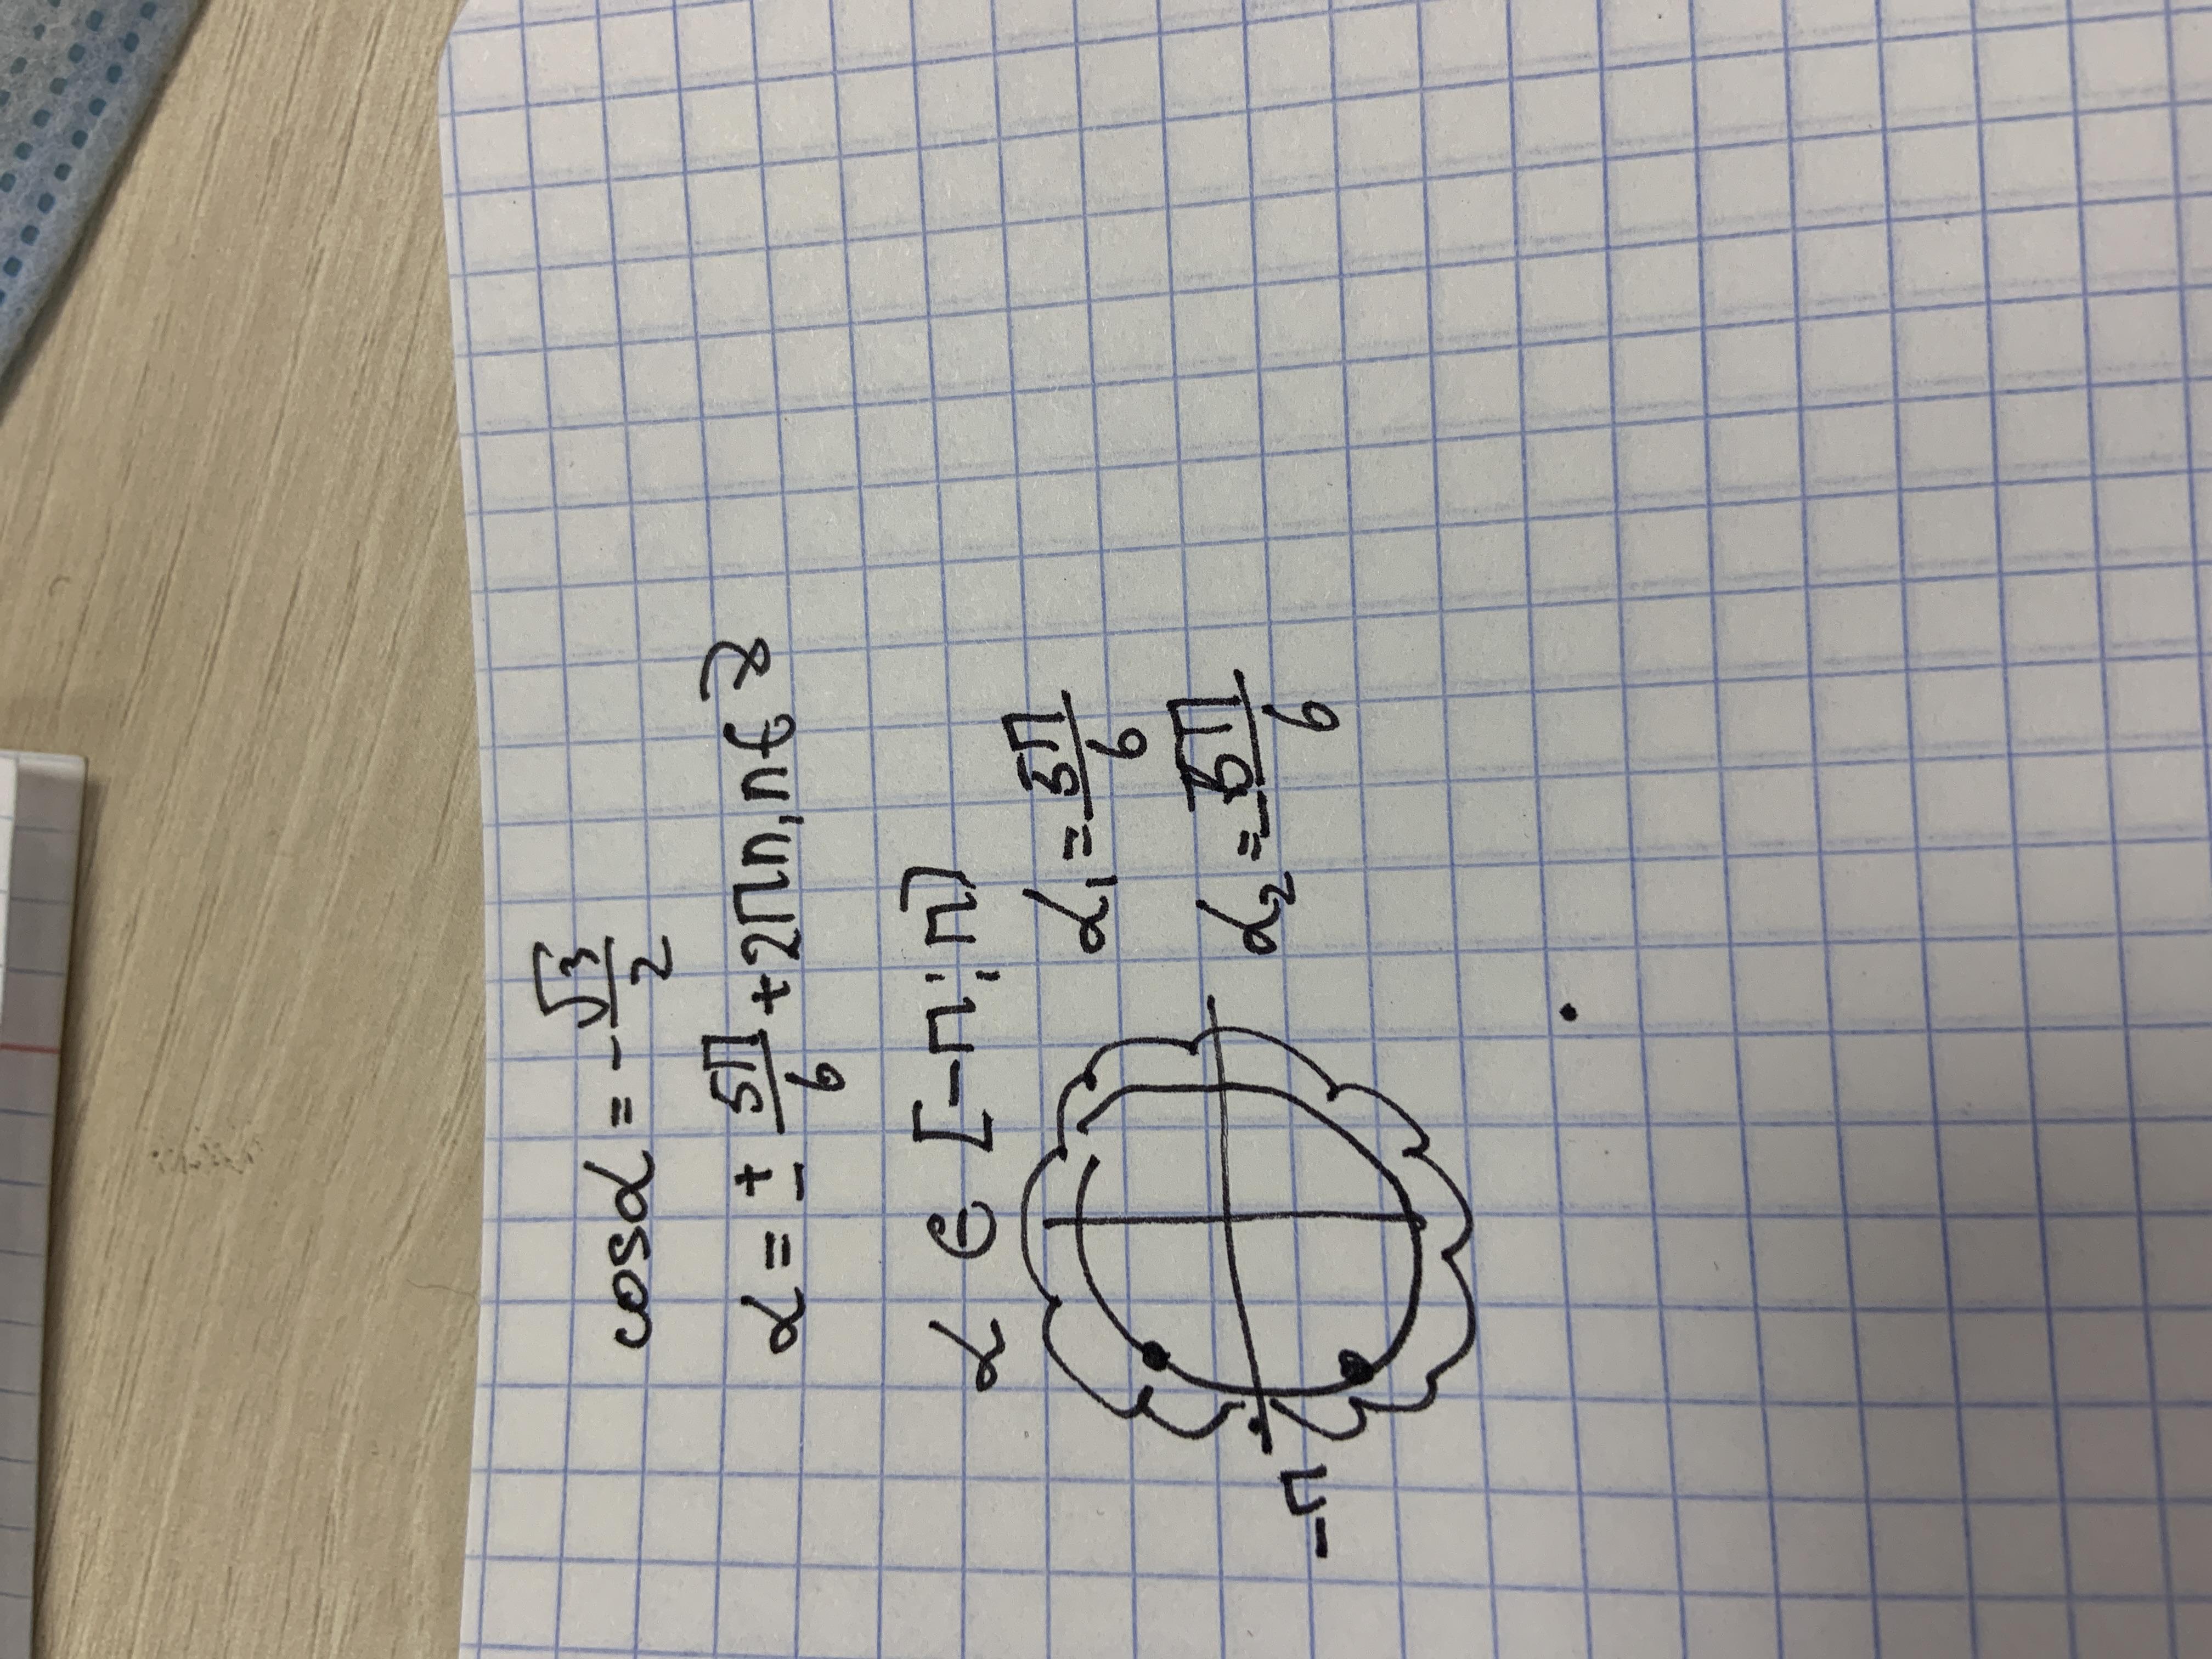 cosα = -√3/2
α = ± 5π/6 + 2πn, n ∈ Z
α ∈ [-π; π)
α₁ = 5π/6
α₂ = -5π/6
-π